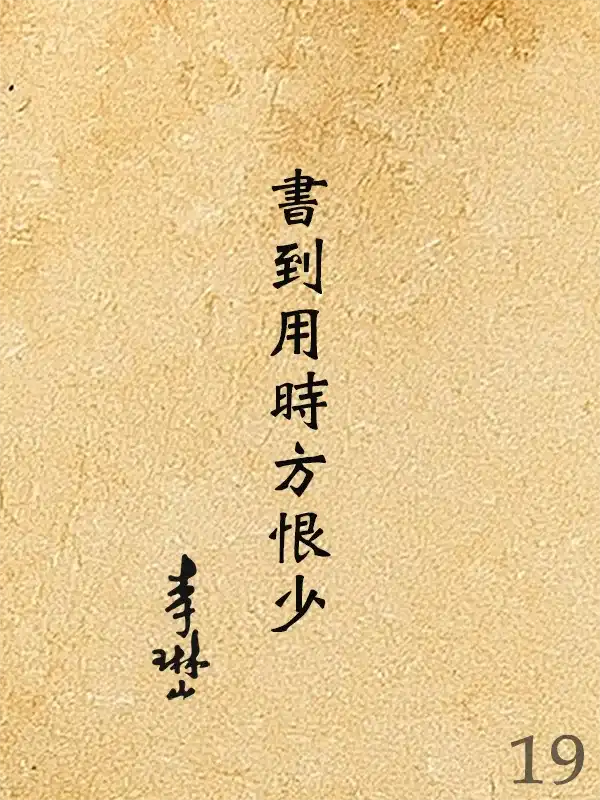 書到用時方恨少
李琳山
19